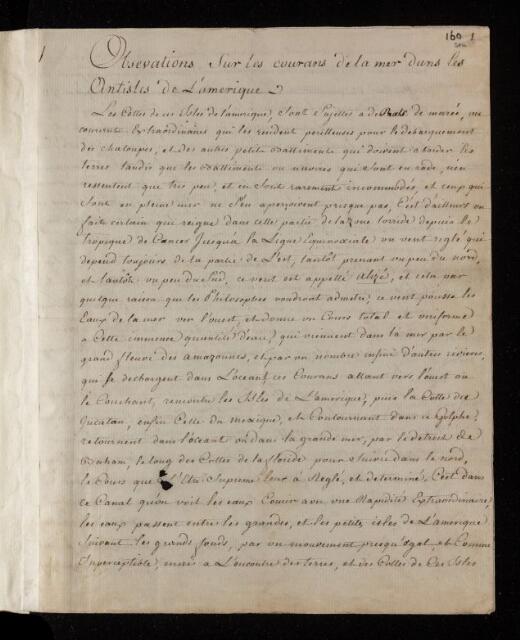 160 1
Obsevations Sur les courans de la mer dans les
Antisles de L'amerique
Les Cottes de ces Isles de l'amerique, Sont Sujettes a de Rats de marée, ou
courents Extraordinaires qui les rendent perilleuses pour le debarquement
des chaloupes, et des autres petits battiments qui doivent aborder les
terres tandis que les battiments ou navires qui Sont en rade, n'en
ressentent que tres peu, et en Sont rarement incommodés, et ceux qui
Sont en pleine mer ne S'en aperçoivent presque pas, C'est d'ailleurs un
faite certain qui reigne dans cette partie de la zone torride depuis le
tropique de Cancer Jusqu'a la Ligne Equinoxiale un vent reglé qui
depend toujours de la partie de L'est, tantôt prenant un peu du nord,
et tantôt un peu du Sud, ce vent est appellé alizé, et cela par
quelque raison que les Philosophes voudront admetre; ce vent pousse les
Eaux de la mer vers l'ouest, et donne un Cours total et uniforme
a Cette immense quantité d'eau, qui viennent dans la mer par le
grand fleuve des amazonnes, et par un nombre infini d'autres rivieres,
qui se dechargent dans L'ocean; ces Courans allant vers l'ouest ou
le Couchant, rencontre les Isles de L'amerique, puis la Cotte de
Jucatan, enfin Celle du mexique, et Contournant dans ce Golphe,
retournent dans l'ocean ou dans la grande mer, par le detroit de
Baham, le long des Cottes de la floride pour Suivre dans le nord,
le Cours que L'Etre Supreme leur a Reglé, et determiné; C'est dans
ce Canal qu'on voit les eaux Courir avec une Rapidité Extraordinaire,
les eaux passent entre les grandes, et les petites isles de L'amerique
Suivant les grands fonds, par un mouvement presqu'egal, et Comme
Imperceptible, mais a L'encontre des terres, et des Cottes de Ces Isles